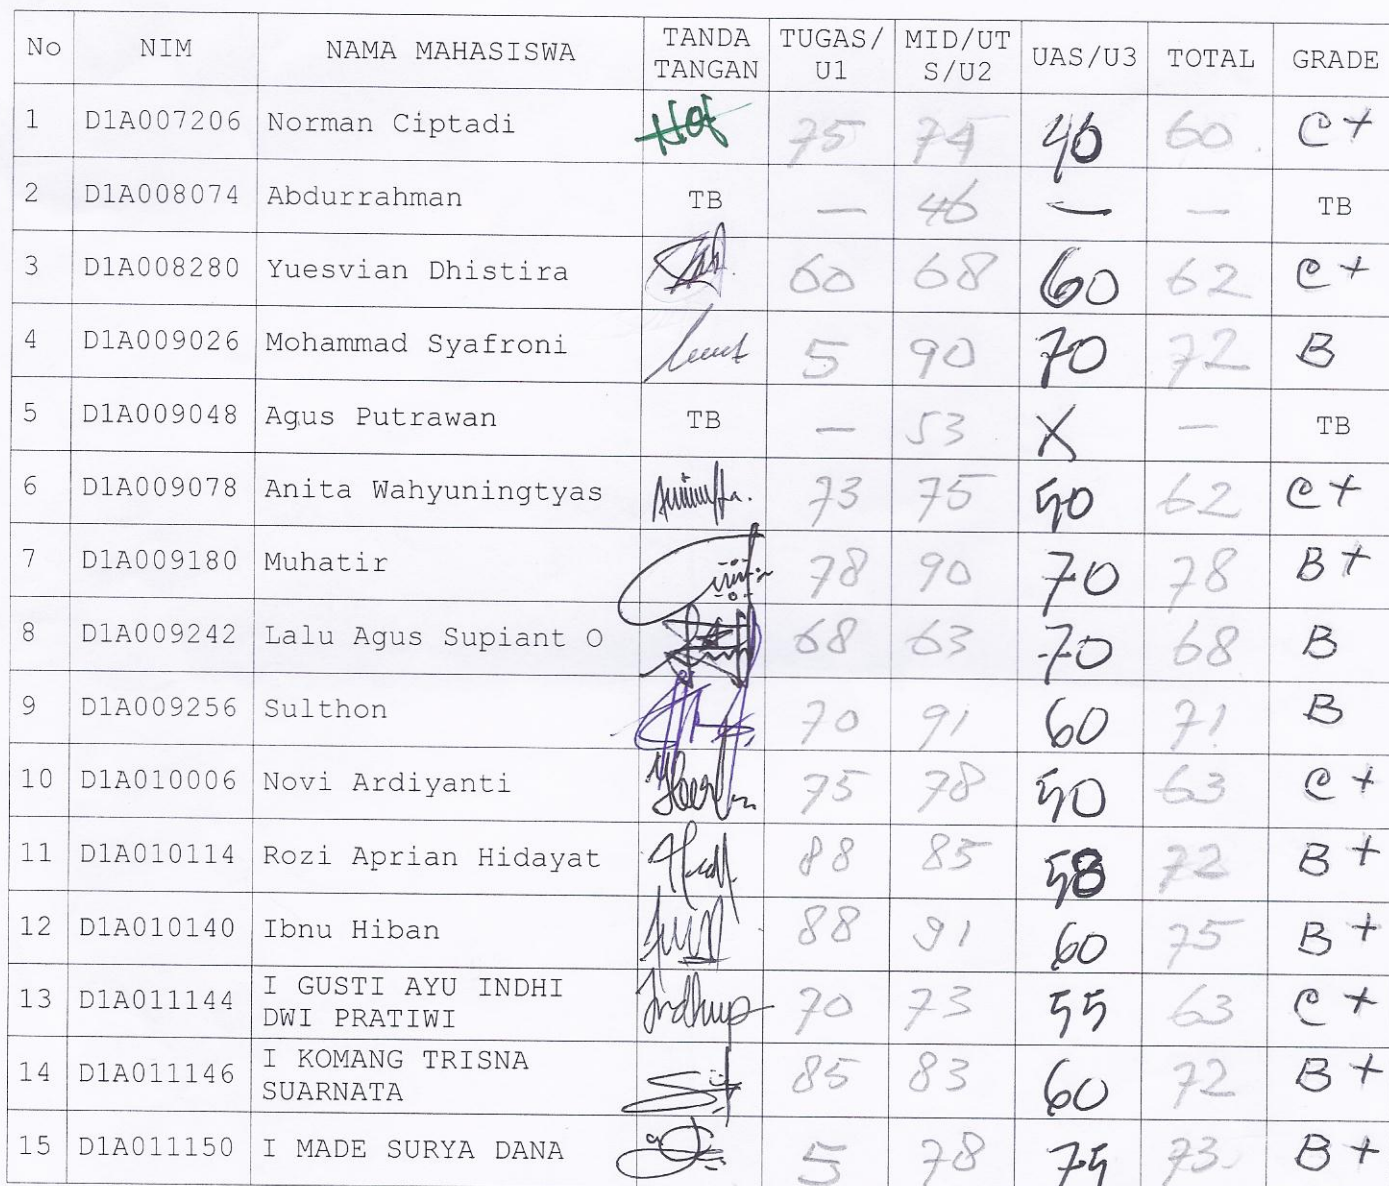 No NIM NAMA MAHASISWA TANDA TANGAN TUGAS/U1 MID/UTS/U2 UAS/U3 TOTAL GRADE
1 D1A007206 Norman Ciptadi 75 74 40 60 C+
2 D1A008074 Abdurrahman TB — 46 — — TB
3 D1A008280 Yuesvian Dhistira 60 68 60 62 C+
4 D1A009026 Mohammad Syafroni 5 90 70 72 B
5 D1A009048 Agus Putrawan TB — 53 X — TB
6 D1A009078 Anita Wahyuningtyas 73 75 50 62 C+
7 D1A009180 Muhatir 78 90 70 78 B+
8 D1A009242 Lalu Agus Supiant O 68 63 70 68 B
9 D1A009256 Sulthon 70 91 60 71 B
10 D1A010006 Novi Ardiyanti 75 78 50 63 C+
11 D1A010114 Rozi Aprian Hidayat 88 85 58 72 B+
12 D1A010140 Ibnu Hiban 88 91 60 75 B+
13 D1A011144 I GUSTI AYU INDHI DWI PRATIWI 70 73 55 63 C+
14 D1A011146 I KOMANG TRISNA SUARNATA 85 83 60 72 B+
15 D1A011150 I MADE SURYA DANA 5 78 75 73 B+